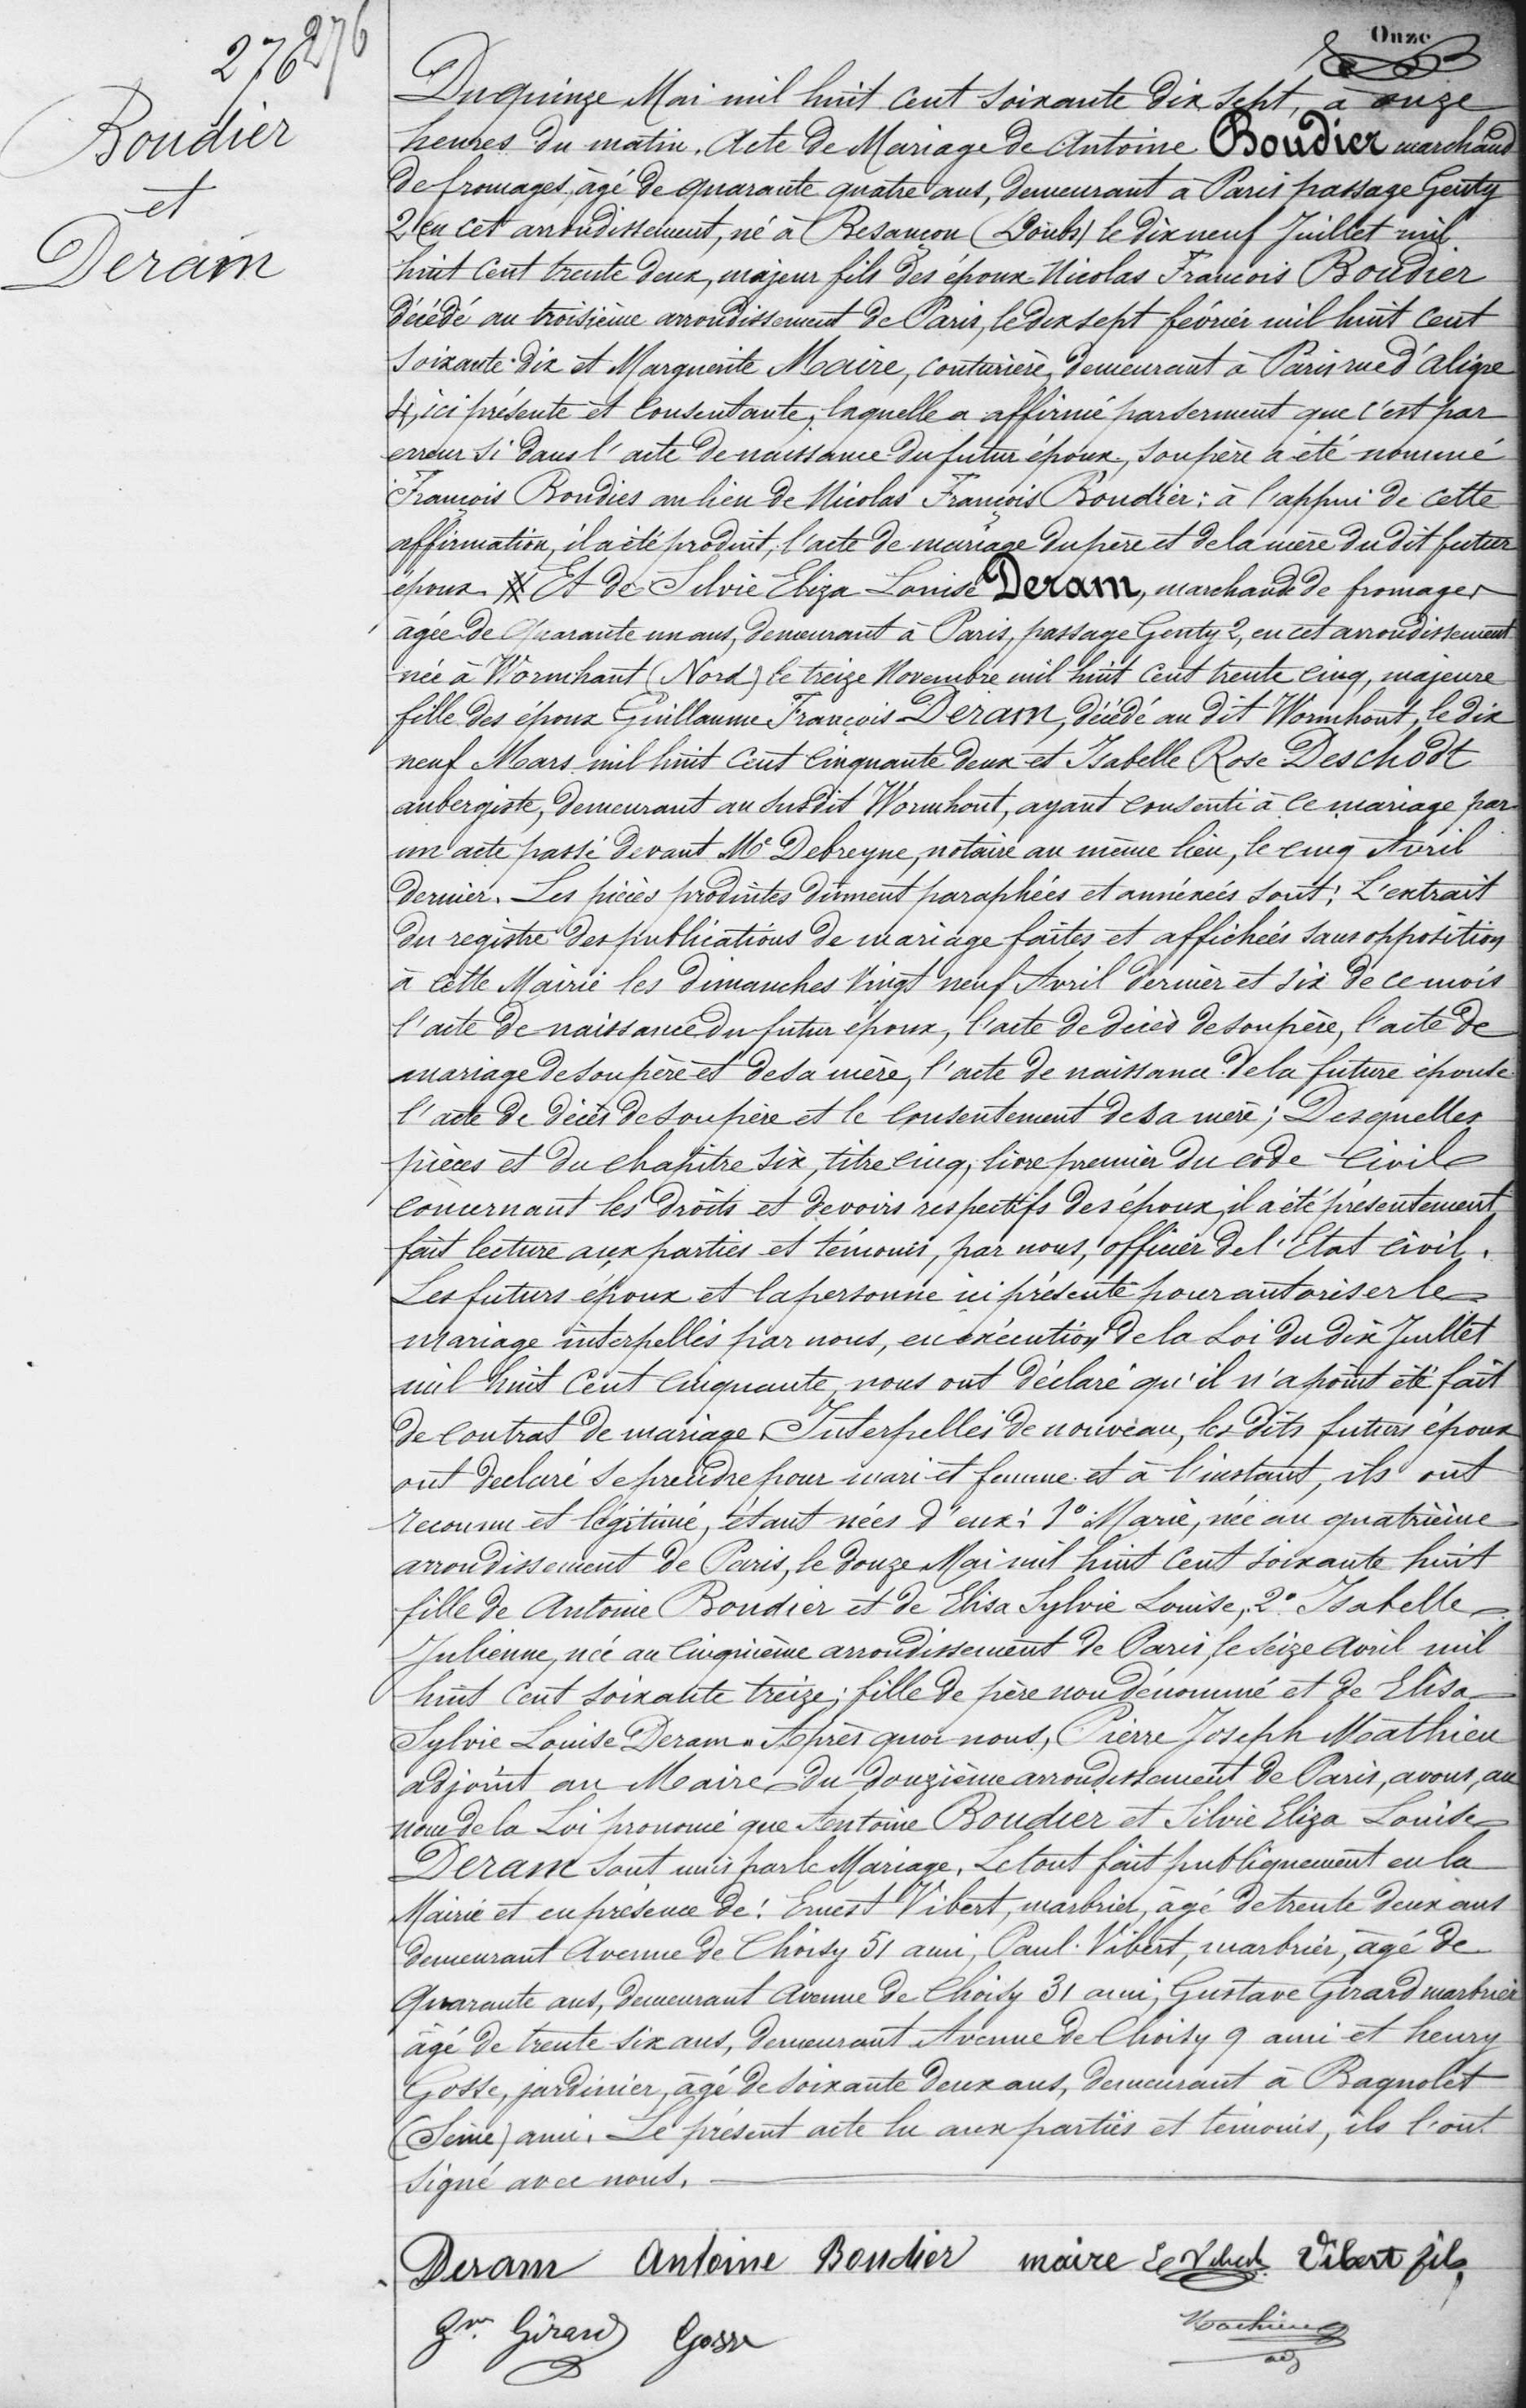 276 276
Onze
Boudier
et
Deram
Du quinze Mai mil huit cent soixante dix sept, à onze
heures du matin. Acte de Mariage de Antoine Boudier marchand
de fromages, âgé de quarante quatre ans, demeurant à Paris passage Genty
2 en cet arrondissement, né à Besançon (Doubs) le dix neuf Juillet mil
huit cent trente deux, majeur fils des époux Nicolas François Boudier
décédé au troisième arrondissement de Paris, le dix sept février mil huit cent
soixante dix et Marguerite Maire, couturière, demeurant à Paris rue d'Aligre
4, ici présente et consentante, laquelle a affirmé par serment que c'est par
erreur si dans l'acte de naissance du futur époux, son père a été nommé
François Boudies au lieu de Nicolas François Boudier: à l'appui de cette
affirmation, il a été produit, l'acte de mariage du père et de la mère du dit futur
époux. Et de Silvie Eliza Louise Deram, marchande de fromages
âgée de Quarante un ans, demeurant à Paris, passage Genty 2, en cet arrondissement
née à Wormhant (Nord) le treize Novembre mil huit cent trente cinq, majeure
fille des époux Guillaume François Deram, décédé au dit Wormhout, le dix
neuf Mars mil huit cent cinquante deux et Isabelle Rose Deschodt
aubergiste, demeurant au susdit Wormhout, ayant consenti à ce mariage par
un acte passé devant Me Debreyne, notaire au même lieu, le cinq Avril
dernier. Les pièces produites dûment paraphées et annéxées sont: L'extrait
du registre des publications de mariage faites et affichées sans opposition
à cette Mairie les dimanches vingt neuf Avril dernier et six de ce mois
l'acte de naissance du futur époux, l'acte de décès de son père, l'acte de
mariage de son père et de sa mère, l'acte de naissance de la future épouse
l'acte de décès de son père et le consentement de sa mère; Desquelles
pièces et du chapitre six, titre cinq, livre premier du code Civil
concernant les droits et devoirs respectifs des époux, il a été présentement
fait lecture aux parties et témoins, par nous, officier de l'Etat civil.
Les futurs époux et la personne ici présente pour autoriser le
mariage interpellés par nous, en exécution de la Loi du dix Juillet
mil huit cent cinquante, nous ont déclaré qu'il n'a point été fait
de contrat de mariage. Interpellés de nouveau, les dits futurs époux
ont declaré se prendre pour mari et femme et à l'instant, ils ont
reconnu et légitimé, étant nées d'eux: 1° Marie, née au quatrième
arrondissement de Paris, le douze Mai mil huit cent soixante huit
fille de Antoine Boudier et de Elisa Sylvie Louise, 2° Isabelle
Julienne, née au cinquième arrondissement de Paris, le seize avril mil
huit cent soixante treize; fille de père non dénommé et de Elisa
Sylvie Louise Deram. Après quoi nous, Pierre Joseph Mathieu
adjoint au Maire du douzième arrondissement de Paris, avons, au
nom de la Loi prononcé que Antoine Boudier et Silvie Eliza Louise
Deram sont unis par le Mariage. Le tout fait publiquement en la
Mairie et en présence de: Ernest Vibert, marbrier, âgé de trente deux ans
demeurant Avenue de Choisy 51 ami, Paul Vibert, marbrier, âgé de
Quarante ans, demeurant Avenue de Choisy 31 ami, Gustave Girard marbrier
âgé de trente six ans, demeurant Avenue de Choisy 9 ami et henry
Gosse, jardinier, âgé de soixante deux ans, demeurant à Bagnolet
(Seine) ami. Le présent acte lu aux parties et témoins, ils l'ont
signé avec nous.
Deram Antoine Boudier maire Vibert fils
Girard Gosse Mathieu
adj